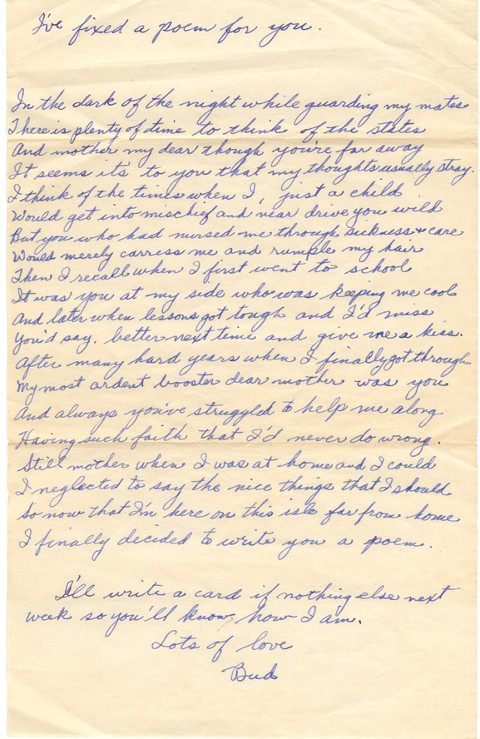 I've fixed a poem for you.
In the dark of the night while guarding my mates
There is plenty of time to think of the states
And mother my dear though you're far away
It seems its to you that my thoughts usually stray.
I think of the times when I, just a child
Would get into mischief and near drive you wild
But you who had nursed me through sickness & care
Would merely carress me and rumple my hair
Then I recall when I first went to school
It was you at my side who was keeping me cool
And later when lessons got tough and I'd miss
You'd say, better next time and give me a kiss.
After many hard years when I finally got through
My most ardent booster dear mother was you
And always you've struggled to help me along
Having such faith that I'd never do wrong.
Still mother when I was at home and I could
I neglected to say the nice things that I should
So now that I'm here on this isle far from home
I finally decided to write you a poem.
I'll write a card if nothing else next
week so you'll know how I am.
Lots of love
Bud